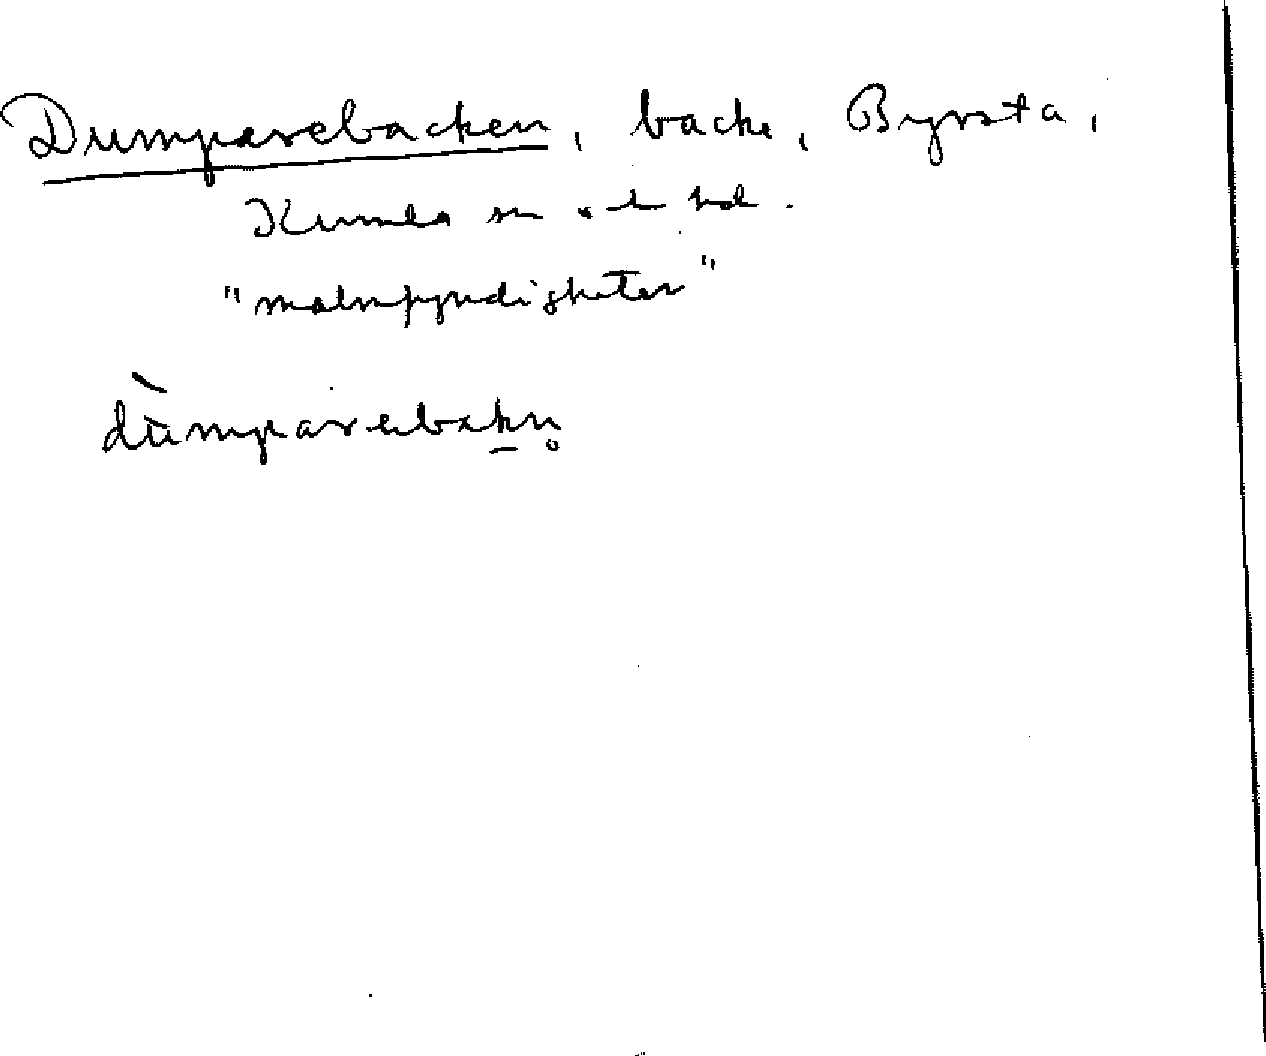 Dumparebacken, backe, Byrsta,
Kumla sn och hd.
"malmfyndigheter"
dùmparebakn̥